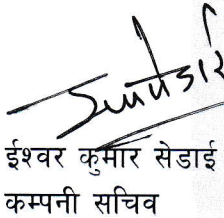 ईश्वर कुमार सेडाई
कम्पनी सचिव